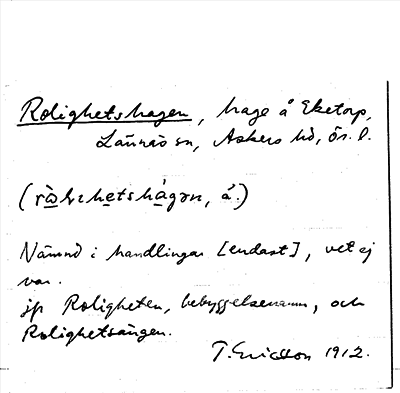 Rolighetshagen, hage å Eketorp,
Lännäs sn, Askers hd, ör. l.
hetshagen, å.)
Nämnd i handlingar [endast], vet ej
var.
jfr Roligheten, bebyggelsenamn, och
Rolighetsängen.
T. Ericsson 1912.